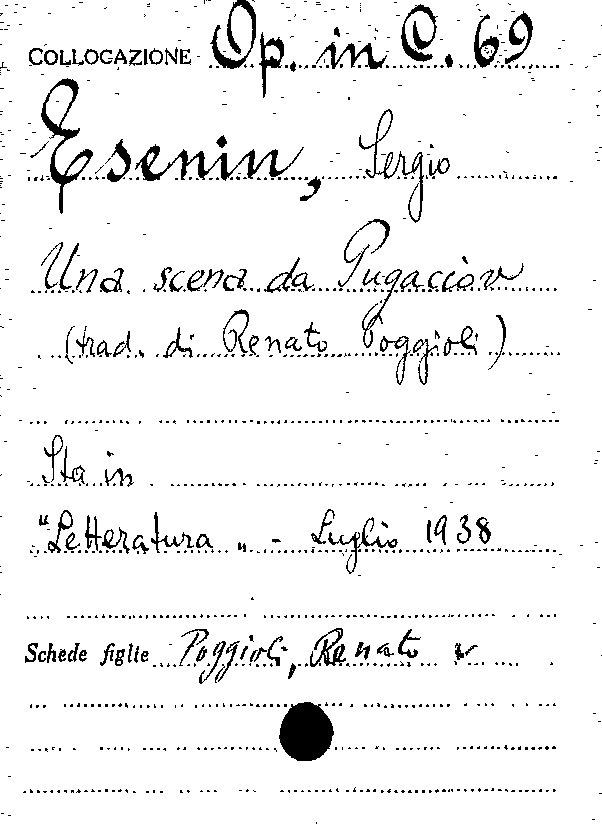 COLLOCAZIONE Op. in C. 69
Esenin, Sergio
Una scena da Pugaciòv
(trad. di Renato Poggioli)
Sta in
"Letteratura" - Luglio 1938
Schede figlie Poggioli, Renato v